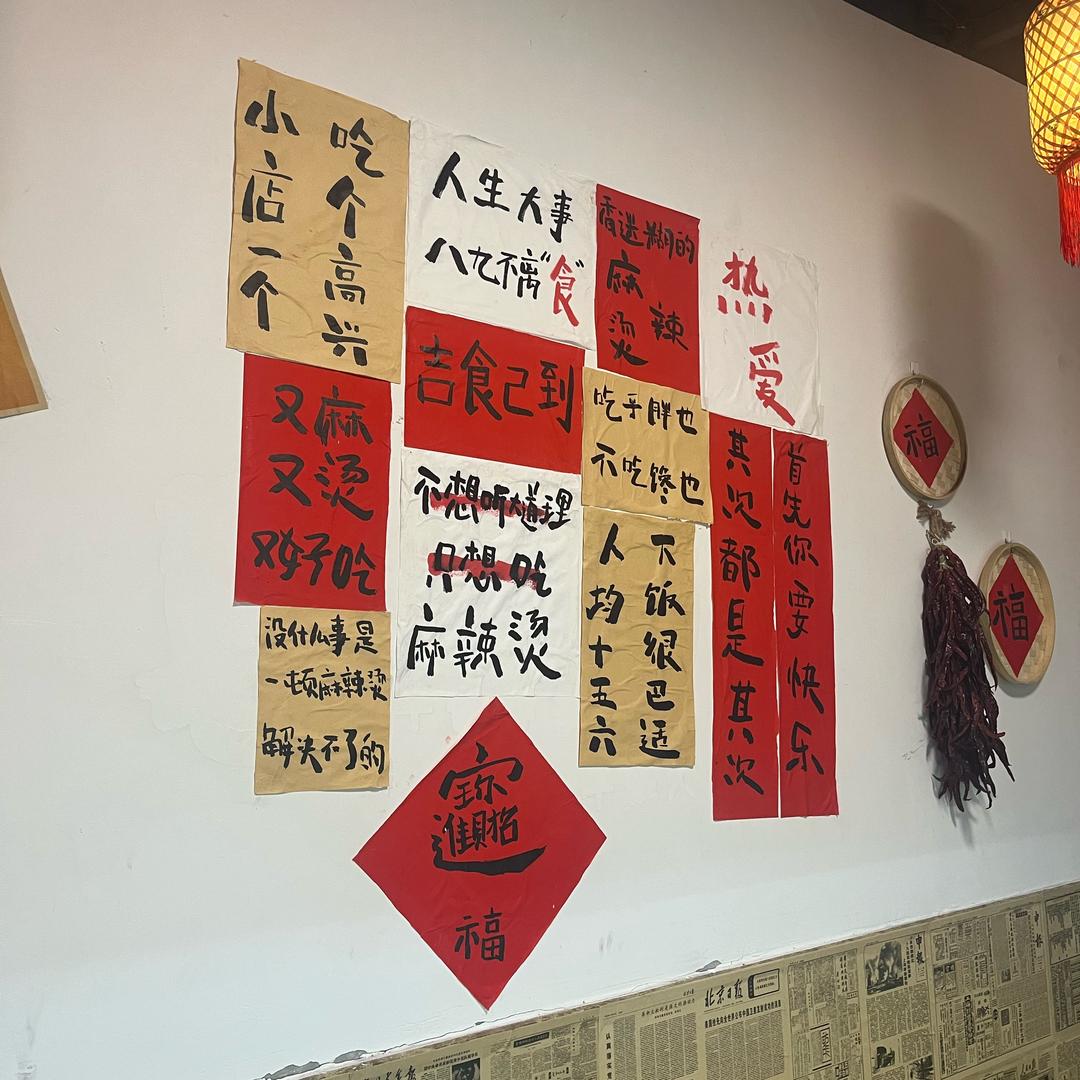 小店一个
吃个高兴
人生大事
八九不离“食”
香迷糊的
麻辣
烫
热
爱
又麻
又烫
又好吃
吉食己到
吃乎胖也
不吃馋也
不想听大道理
只想吃
麻辣烫
下饭很巴适
人均十五六
首先你要快乐
其次都是其次
没什么事是
一顿麻辣烫
解决不了的
招财进宝
福
福
福
北京日报
申报